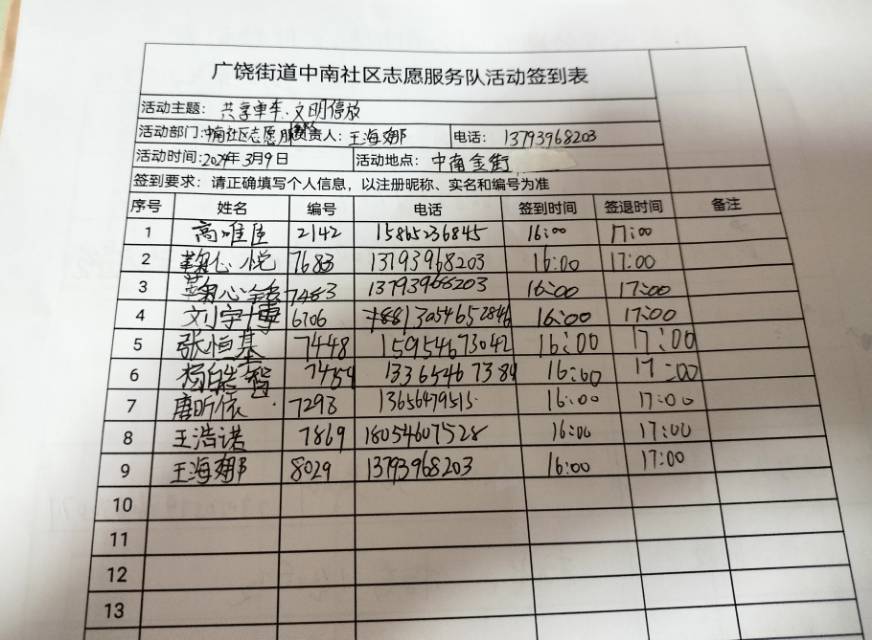 广饶街道中南社区志愿服务队活动签到表
活动主题: 共享单车.文明停放
活动部门:中南社区志愿服务队 负责人: 王海娜 电话: 13793968203
活动时间:2024年3月9日 活动地点: 中南金街
签到要求: 请正确填写个人信息, 以注册昵称、实名和编号为准
序号 姓名 编号 电话 签到时间 签退时间 备注
1 高唯臣 2142 15865236845 16:00 17:00
2 鞠心悦 7683 13793968203 16:00 17:00
3 鞠心 7483 13793968203 16:00 17:00
4 刘宇博 6706 13054652846 16:00 17:00
5 张恒基 7448 15954673042 16:00 17:00
6 杨皓智 7454 13365467384 16:00 17:00
7 唐昕依 7293 1365647951 16:00 17:00
8 王浩诺 7869 18054607528 16:00 17:00
9 王海娜 8029 13793968203 16:00 17:00
10
11
12
13